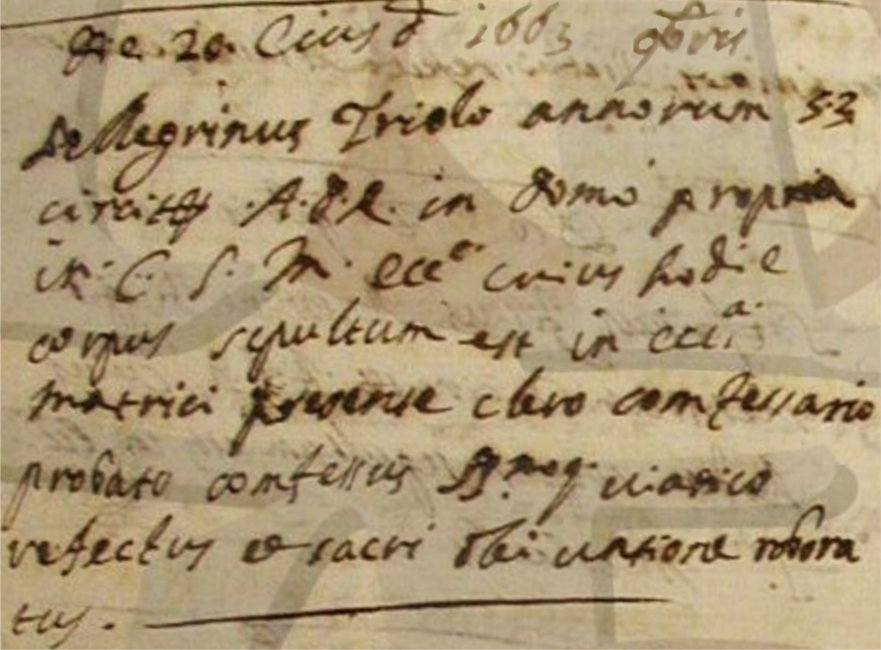 Die 20 Eiusd 1663 9bris
Pellegrinus Triolo annorum 53
circiter A.D.R. in domo propria
in C. S. M. ecce cuius hodie
corpus sepultum est in ecc.a
matrici presente clero comfessario
probato comfessus SS.moq. viatico
refectus et sacri olei untione robora
tus.